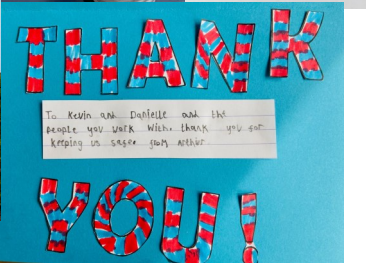 THANK
To Kevin and Danielle and the
people you work with. thank you for
keeping us safe. from Arthur
YOU!